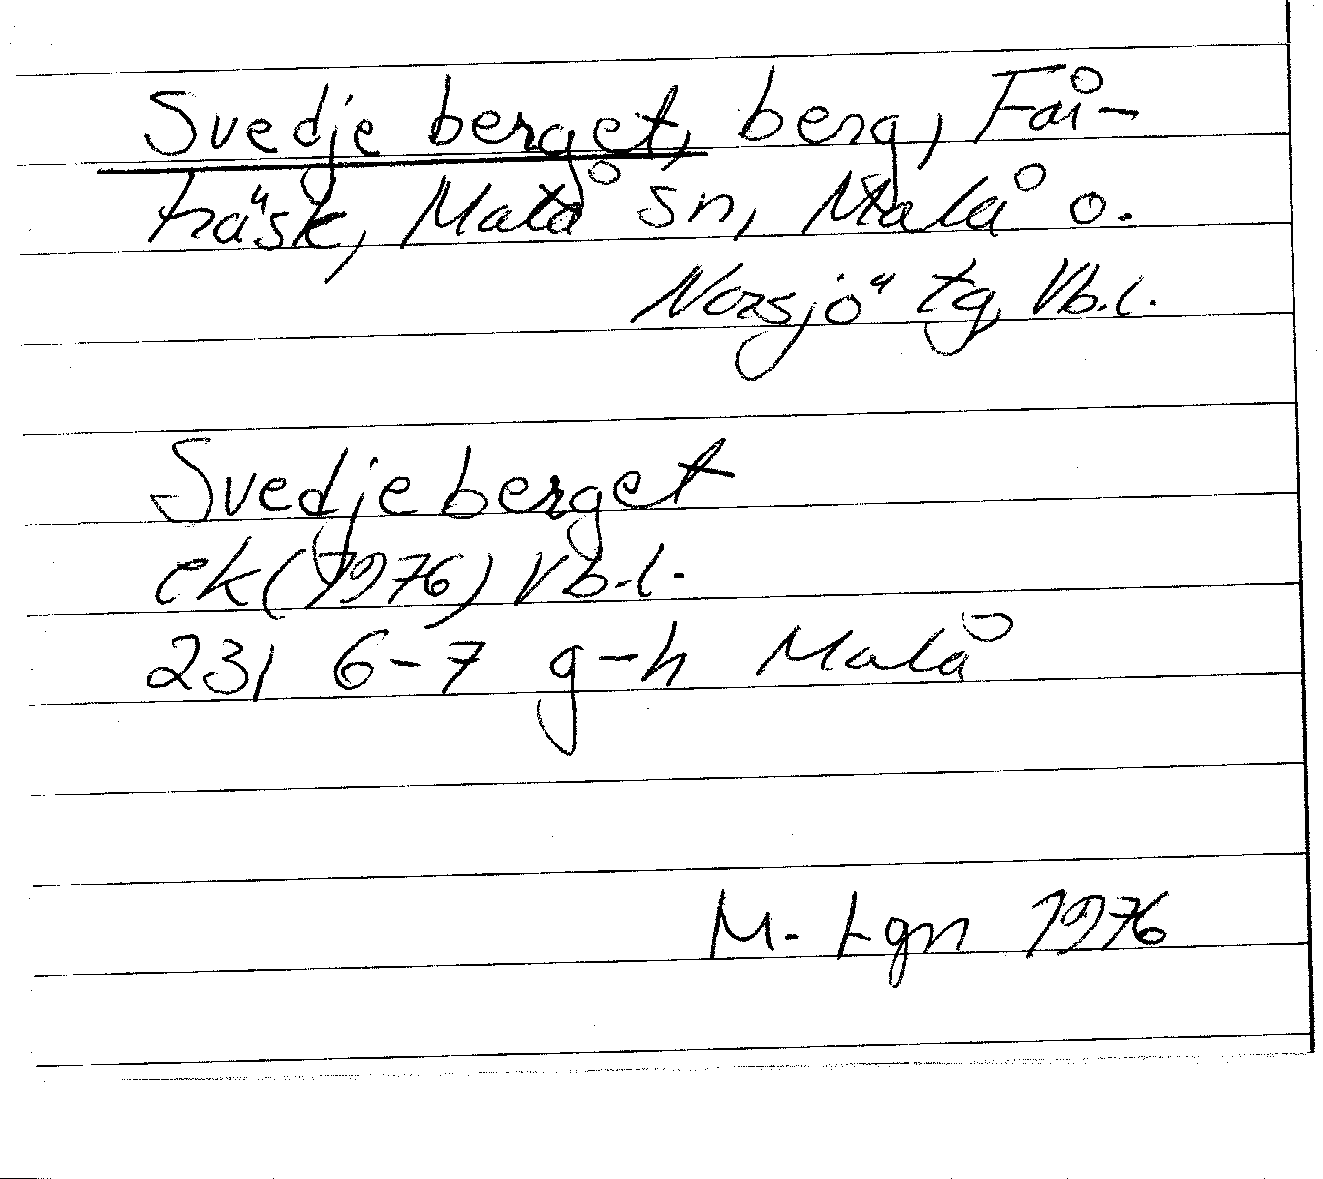 Svedjeberget, berg, Få-
träsk, Malå sn, Malå o.
Norsjö tg, Vb.l.
Svedjeberget
ek (1976) Vb.l.
231 6-7 g-h Malå
M. Lgn 1976